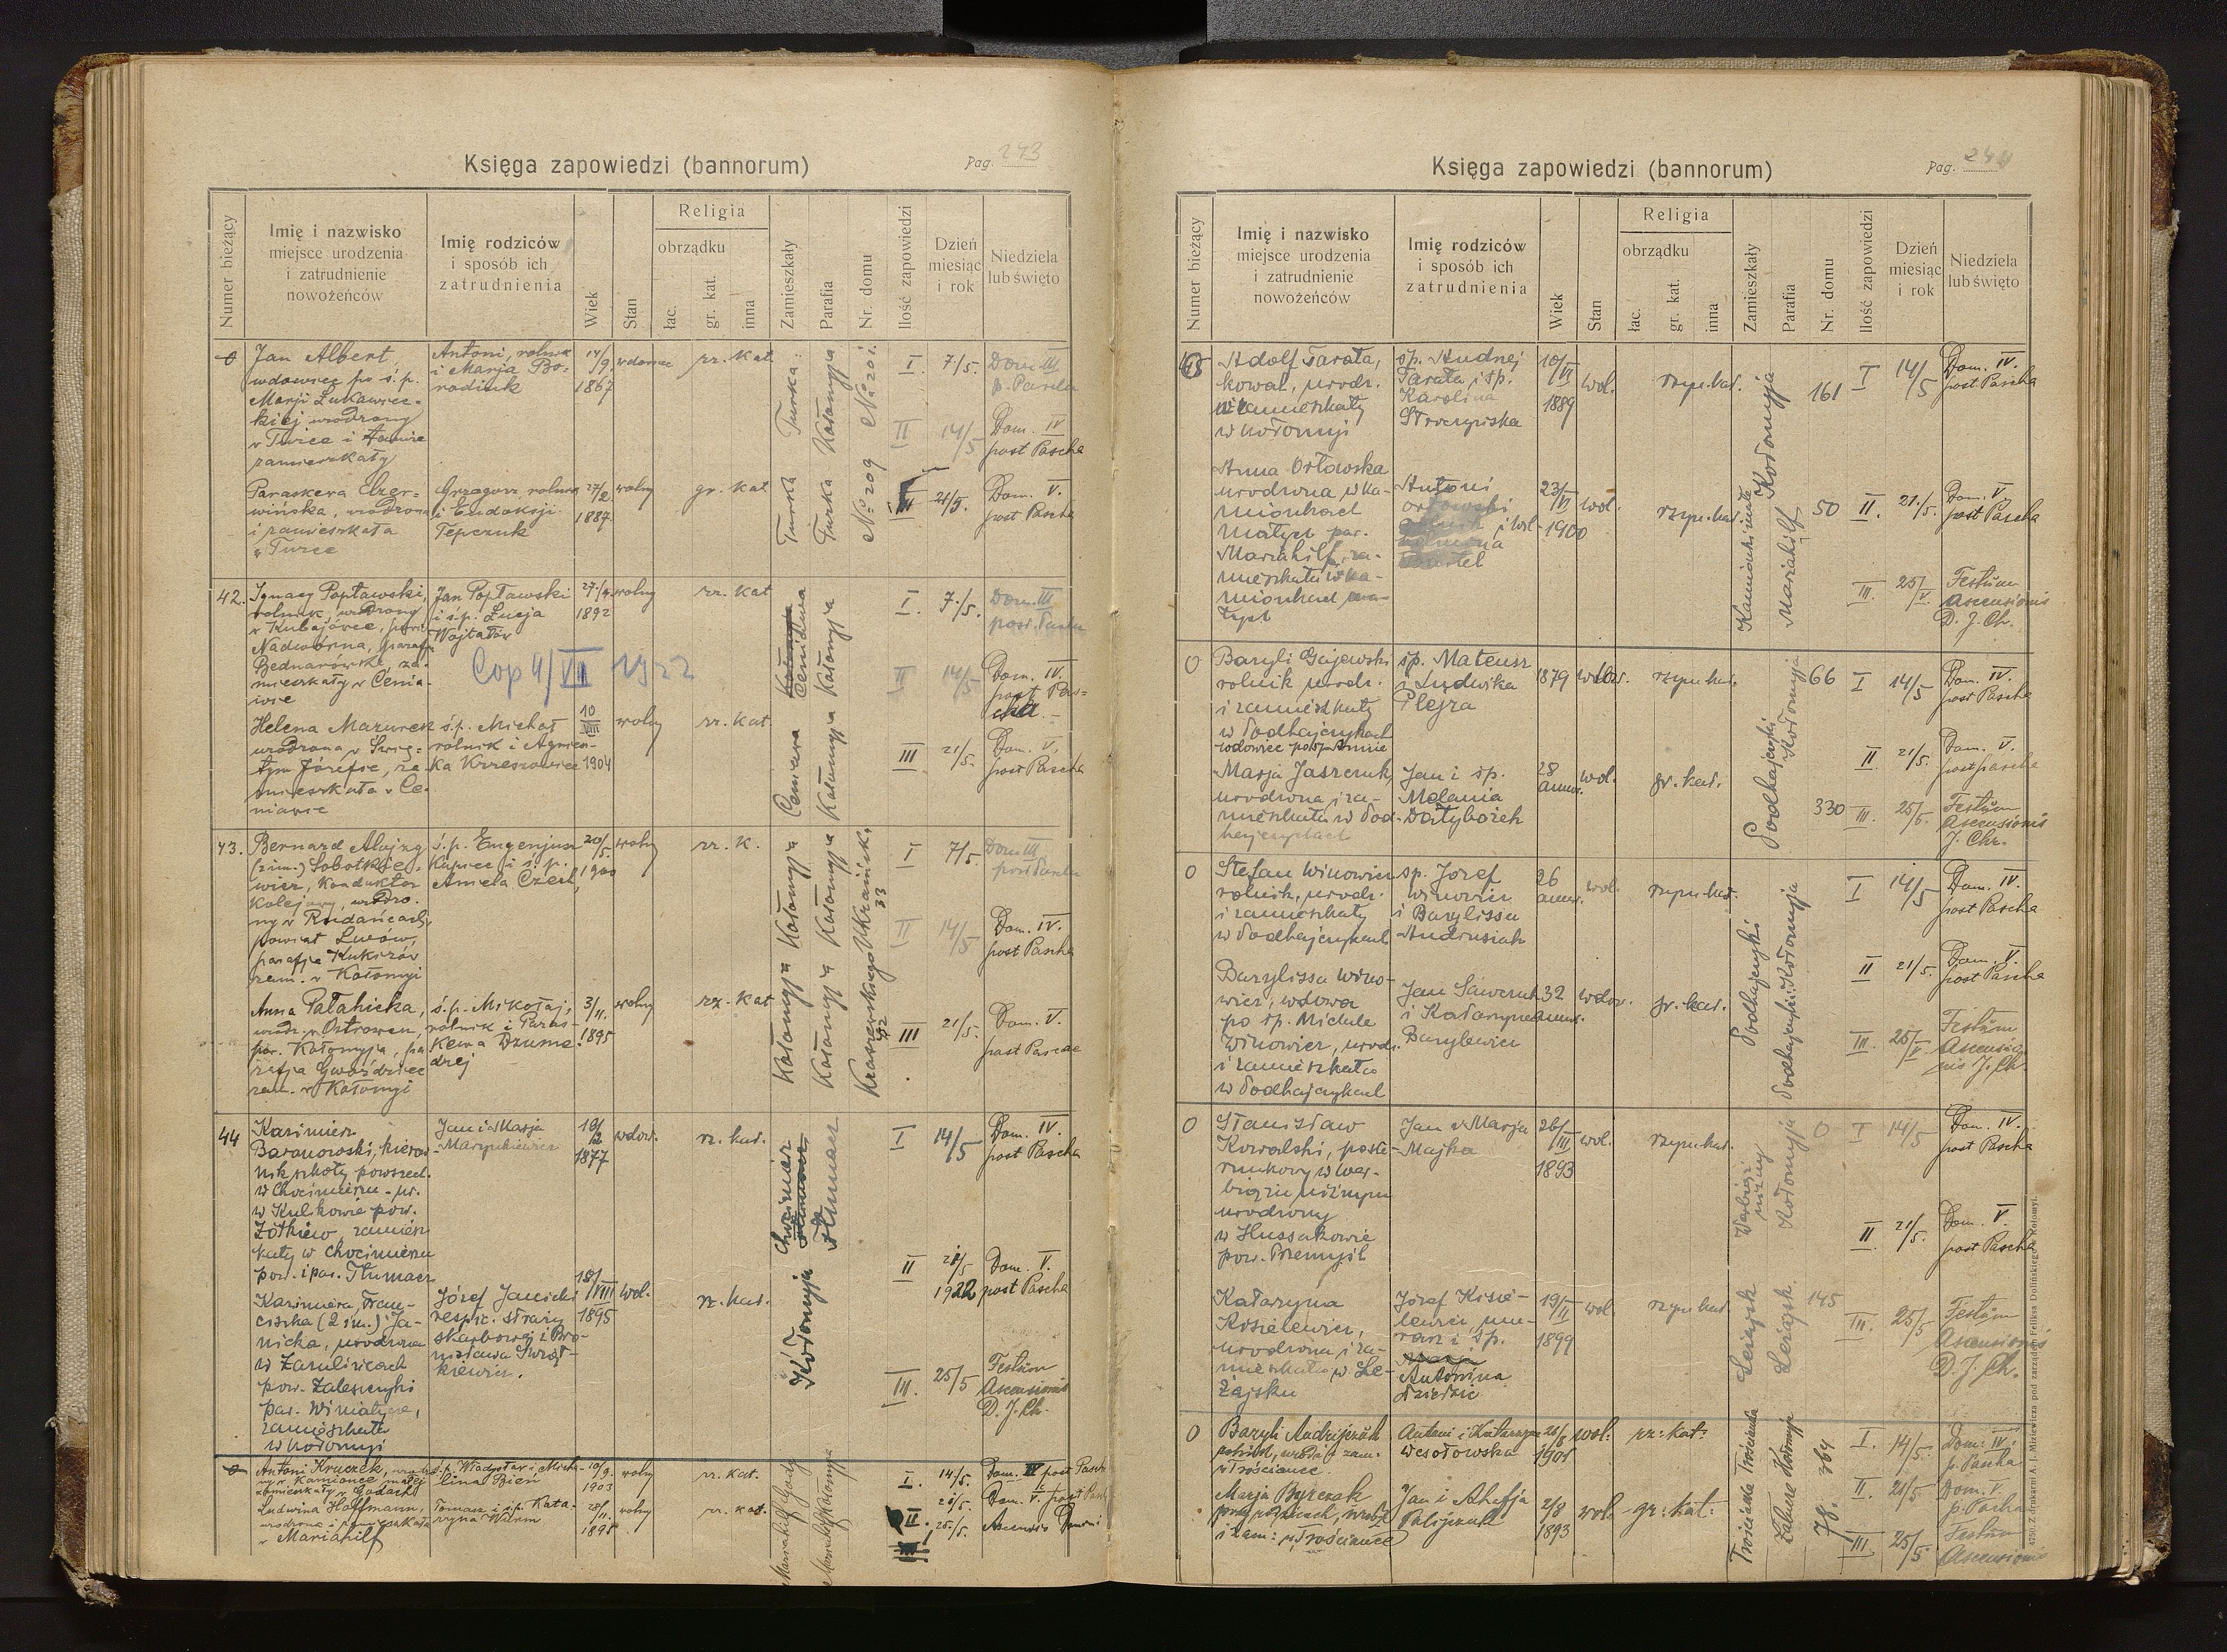 Księga zapowiedzi (bannorum)
Pag. 243
Numer bieżący
Imię i nazwisko
miejsce urodzenia
i zatrudnienie
nowożeńców
Imię rodziców
i sposób ich
zatrudnienia
Wiek
Stan
Religia
obrządku
łac.
gr. kat.
inna
Zamieszkały
Parafia
Nr. domu
Ilość zapowiedzi
Dzień
miesiąc
i rok
Niedziela
lub święto
0
Jan Albert,
wdowiec po ś. p.
Marji Łukawiec-
kiej urodzony
w Turce i tamże
zamieszkały
Antoni, rolnik
i Marja Bo-
rodiuk
14/9.
1867
wdowiec
rz. kat.
Turka
Kołomyja
No 201
I. 7/5. Dom. III
p. Pascha
II 14/5 Dom. IV
post Pascha
III 21/5. Dom. V.
post Pascha
Paraskewa Czer-
wińska, urodzona
i zamieszkała
w Turce
Grzegorz, rolnik
i Eudoksji
Tepczuk
27/2
1887
wolny
gr. kat
Turka
Turka
No 209
42.
Ignacy Popławski,
rolnik, urodzony
w Kubajówce, pow.
Nadwórna, paraf.
Bednarówka, za-
mieszkały w Cenia-
wie
Jan Popławski
i ś.p. Łucja
Wojtałów
1892
wolny
rz. kat
Kołomyja
Ceniawa
Kołomyja
I. 7/5. Dom. III
post. Pascha
Cop 4/VII 1922
II 14/5 Dom. IV.
post Pas-
cha.
Helena Mazurek
urodzona w Świę-
tym Józefie, za-
mieszkała w Ce-
niawie
ś.p. Michał
rolnik i Agniesz-
ka Krzeszowiec
10
VIII
1904
wolny
rz. kat.
Ceniawa
Kołomyja
III 21/5. Dom. V.
post Pascha
43.
Bernard Alojzy
(2 im.) Sobotkie-
wicz, konduktor
kolejowy, urodzo-
ny w Rudańcach,
powiat Lwów,
parafja Kukizów
zam. w Kołomyi
ś.p. Eugenjusz
Kupiec i ś. p.
Aniela Czech,
20/5.
1900
wolny
rz. k.
Kołomyja
Kołomyja
33
I 7/5. Dom. III
post Pascha
II 14/5 Dom. IV.
post Pascha
Anna Palahicka,
urodz. w Ostrowcu,
pow. Kołomyja, pa
rafja Gwoździec
zam. w Kołomyi
ś. p. Mikołaj,
rolnik i Paras-
kewa Dzume
drej
3/11.
1895
wolny
rz. kat
Kołomyja
Kołomyja
Kraszewskiego
III 21/5. Dom. V.
post Pascae
44
Kazimierz
Baranowski, kierow
nik szkoły powszech.
w Chocimierzu - ur.
w Kulikowie pow.
Żółkiew, zamiesz
kały w Chocimierzu
pow. i par. Tłumacz
Jan i Marja
Marynkiewicz
1877
wdow.
rz. kat.
Chocimierz
Tłumacz
I 14/5 Dom. IV.
post Pascha
II 21/5
1922
Dom. V.
post Pascha
Kazimiera, Fran-
ciszka (2 im.) Ja-
nicka, urodzona
w Zazulińcach
pow. Zaleszczyki
par. Winiatyńce,
zamieszkała
w Kołomyi
Józef Janicki
respic. straży
skarbowej i Bro-
nisława Świąt-
kiewicz.
18/VIII
1895
wol.
rz. kat.
Kołomyja
III. 25/5 Festum
Ascensionis
D. J. Ch.
0
Antoni Kruczek,
ny w Kamionce małej
zamieszkały w Godach
Ludwina Hoffmann,
urodzona i zamieszkała
w Mariahilf
ś.p. Władysław i Micha-
lina Bień
Tomasz i ś.p. Kata-
rzyna Wurm
10/9.
1903
28/11.
1898
wolny
wolny
rz. kat.
rz. kat.
Mariahilf Gody
Mariahilf Kołomyja
I. 14/5. Dom. IV post Pascha
21/5. Dom. V. post Pascha
II. 25/5.
III
Księga zapowiedzi (bannorum)
Pag. 244
Numer bieżący
Imię i nazwisko
miejsce urodzenia
i zatrudnienie
nowożeńców
Imię rodziców
i sposób ich
zatrudnienia
Wiek
Stan
Religia
obrządku
łac.
gr. kat.
inna
Zamieszkały
Parafia
Nr. domu
Ilość zapowiedzi
Dzień
miesiąc
i rok
Niedziela
lub święto
45
Adolf Tarała,
kowal, urodz.
i zamieszkały
w Kołomyi
śp. Andrzej
Tarała i śp.
Karolina
Stroczyńska
10/VI
1889
wol.
rzym. kat.
Kołomyja
161
I 14/5 Dom. IV.
post Pascha
Anna Orłowska
urodzona w Ka-
mionkach
Małych par.
Mariahilf, za-
mieszkała w Ka-
mionkach ma-
łych
Antoni
Orłowski
23/VI
1900
wol.
rzym. kat.
Kamionki małe
Mariahilf
50
II. 21/5. Dom. V
post Pascha
III. 25/V. Festum
Ascensionis
D. J. Ch.
0
Bazyli Gajewski
rolnik urodz.
i zamieszkały
w Podhajczykach
wdowiec po śp. Annie
śp. Mateusz
i Ludwika
Plejza
1879
wdow.
rzym. kat.
Kołomyja
66
I 14/5 Dom. IV.
post Pascha
II 21/5. Dom. V.
post pascha
Marja Jaszczuk,
urodzona i za-
mieszkała w Pod-
hajczykach
Jan i śp.
Melania
Dołybożek
28
annor.
wol.
gr. kat.
Podhajczyki
330
III. 25/5. Festum
Ascensionis
J. Chr.
0
Stefan Winowicz
rolnik, urodz.
i zamieszkały
w Podhajczykach
śp. Józef
Winowicz
i Barylissa
Andrusiak
26
annor.
wol.
rzym. kat.
Podhajczyki
Kołomyja
I 14/5 Dom. IV.
post Pascha
II 21/5. Dom. V.
post Pascha
Barylissa Wino-
wicz, wdowa
po śp. Michale
Winowicz, urodz.
i zamieszkała
w Podhajczykach
Jan Sawczuk
i Katarzyna
Barylewicz
32
annor.
wdow.
gr. kat.
Podhajczyki
III. 25/V Festum
Ascensio
nis J. Ch.
0
Stanisław
Kowalski, poste-
runkowy w Wer-
biążu niżnym
urodzony
w Hussakowie
pow. Przemyśl
Jan i Marja
Majka
26/III
1893
wol.
rzym. kat.
Werbiąż
niżny
Kołomyja
0
I 14/5 Dom. IV.
post Pascha
II 21/5. Dom. V.
post Pascha
Katarzyna
Kisielewicz,
urodzona i za-
mieszkała w Le-
żajsku
Józef Kisie-
lewicz, mu-
rarz i śp.
Marja
Antonina
Dziedzic
19/II
1899
wol
rzym. kat.
Leżajsk
Leżajsk.
145
III. 25/5 Festum
Ascensionis
D. J. Ch.
0
Bazyli Andrijczuk
rolnik, urodz. i zam.
w Trościance.
Antoni i Katarzyna
Wesołowska
1901
wol.
rz: kat:
Trościanka
Kołomyja
364
I. 14/5. Dom. IV.
p. Pascha
II. 21/5 Dom. V.
p. Pascha
Marja Byrczak
i zam: w Trościance
Jan i Ahafja
Palijczuk
2/8
1893
wol.
gr: kat:
Trościanka
78.
III. 25/5. Festum
Ascensionis
4750. Z drukarni A. J. Miziewicza pod zarządem Feliksa Dolińskiego w Kołomyi.